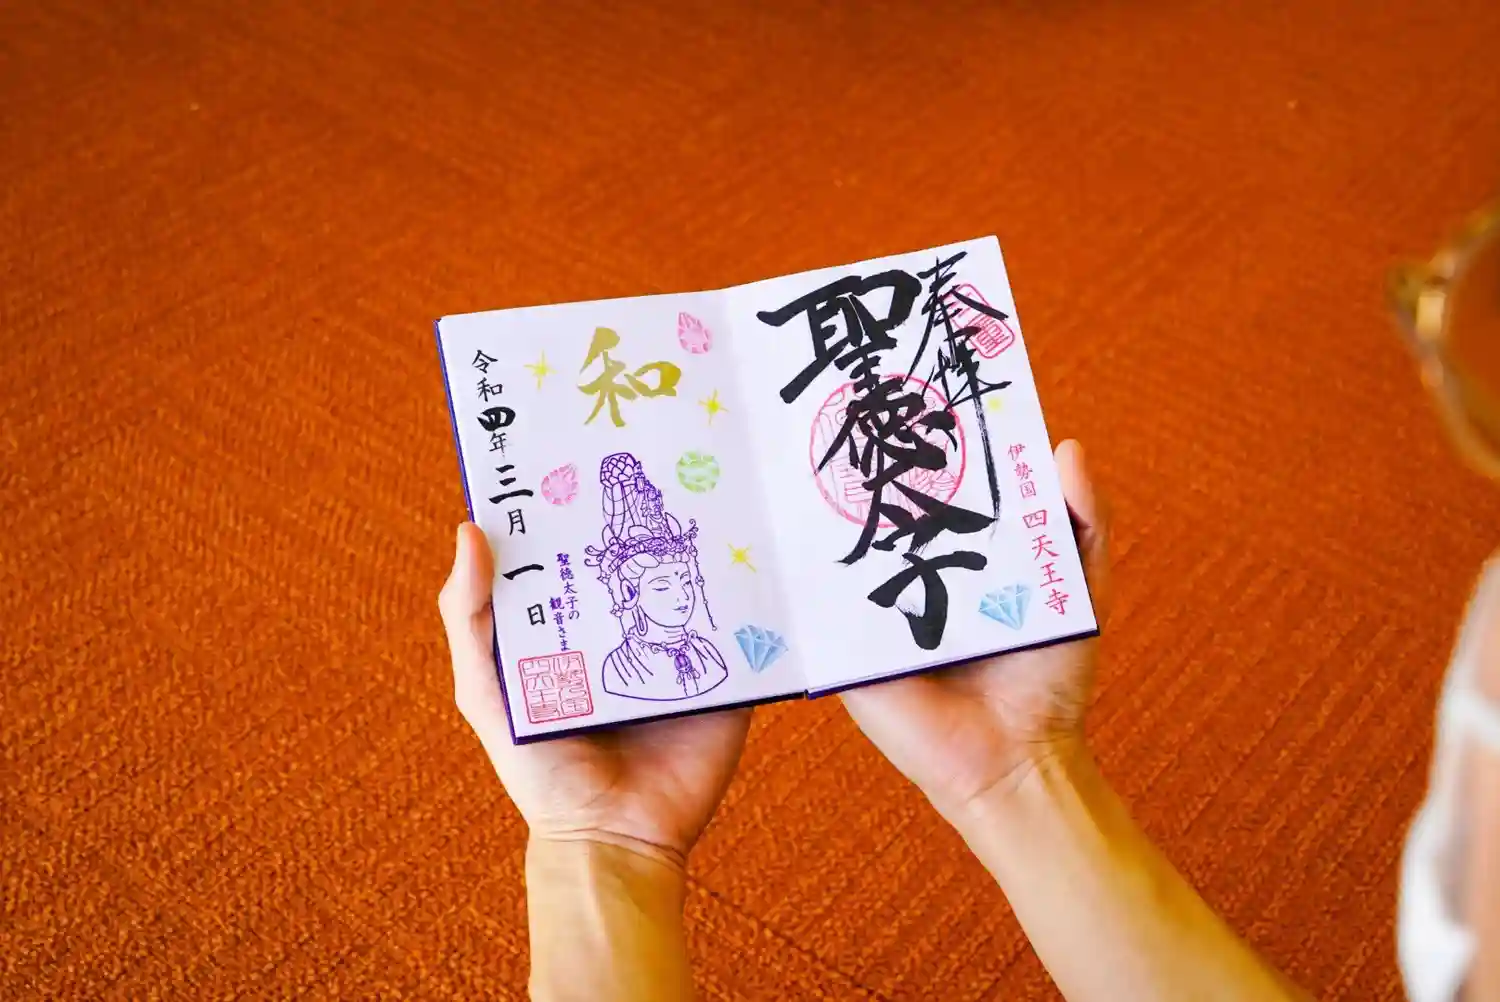 奉拝
聖徳太子
伊勢国 四天王寺
和
令和四年三月一日
聖徳太子の
観音さま